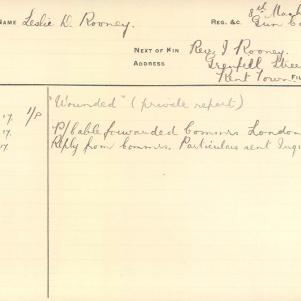 NAME Leslie D. Rooney. REG. &C. 8th Mach
Gun Co
NEXT OF KIN Rev. J Rooney.
ADDRESS Grenfell Stree
Kent Town FI
"Wounded" (private report)
17. 1/P P/cable forwarded Commrs London
17. Reply from Commrs. Particulars sent Inqu
17